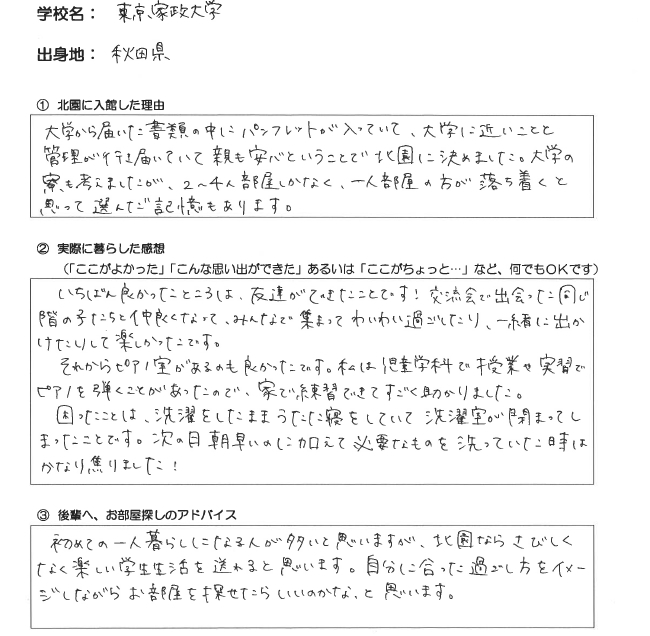 学校名： 東京家政大学
出身地： 秋田県
① 北園に入館した理由
大学から届いた書類の中にパンフレットが入っていて、大学に近いことと
管理が行き届いていて親も安心ということで北園に決めました。大学の
寮も考えましたが、2〜4人部屋しかなく、一人部屋の方が落ち着くと
思って選んだ記憶もあります。
② 実際に暮らした感想
（「ここがよかった」「こんな思い出ができた」あるいは「ここがちょっと…」など、何でもOKです）
いちばん良かったところは、友達ができたことです！交流会で出会った同じ
階の子たちと仲良くなって、みんなで集まってわいわい過ごしたり、一緒に出か
けたりして楽しかったです。
それからピアノ室があるのも良かったです。私は児童学科で授業や実習で
ピアノを弾くことがあったので、家で練習できてすごく助かりました。
困ったことは、洗濯をしたままうたた寝をしていて洗濯室が閉まってし
まったことです。次の日朝早いのに加えて必要なものを洗っていた時は
かなり焦りました！
③ 後輩へ、お部屋探しのアドバイス
初めての一人暮らしになる人が多いと思いますが、北園ならさびしく
なく楽しい学生生活を送れると思います。自分に合った過ごし方をイメー
ジしながらお部屋を探せたらいいのかな、と思います。